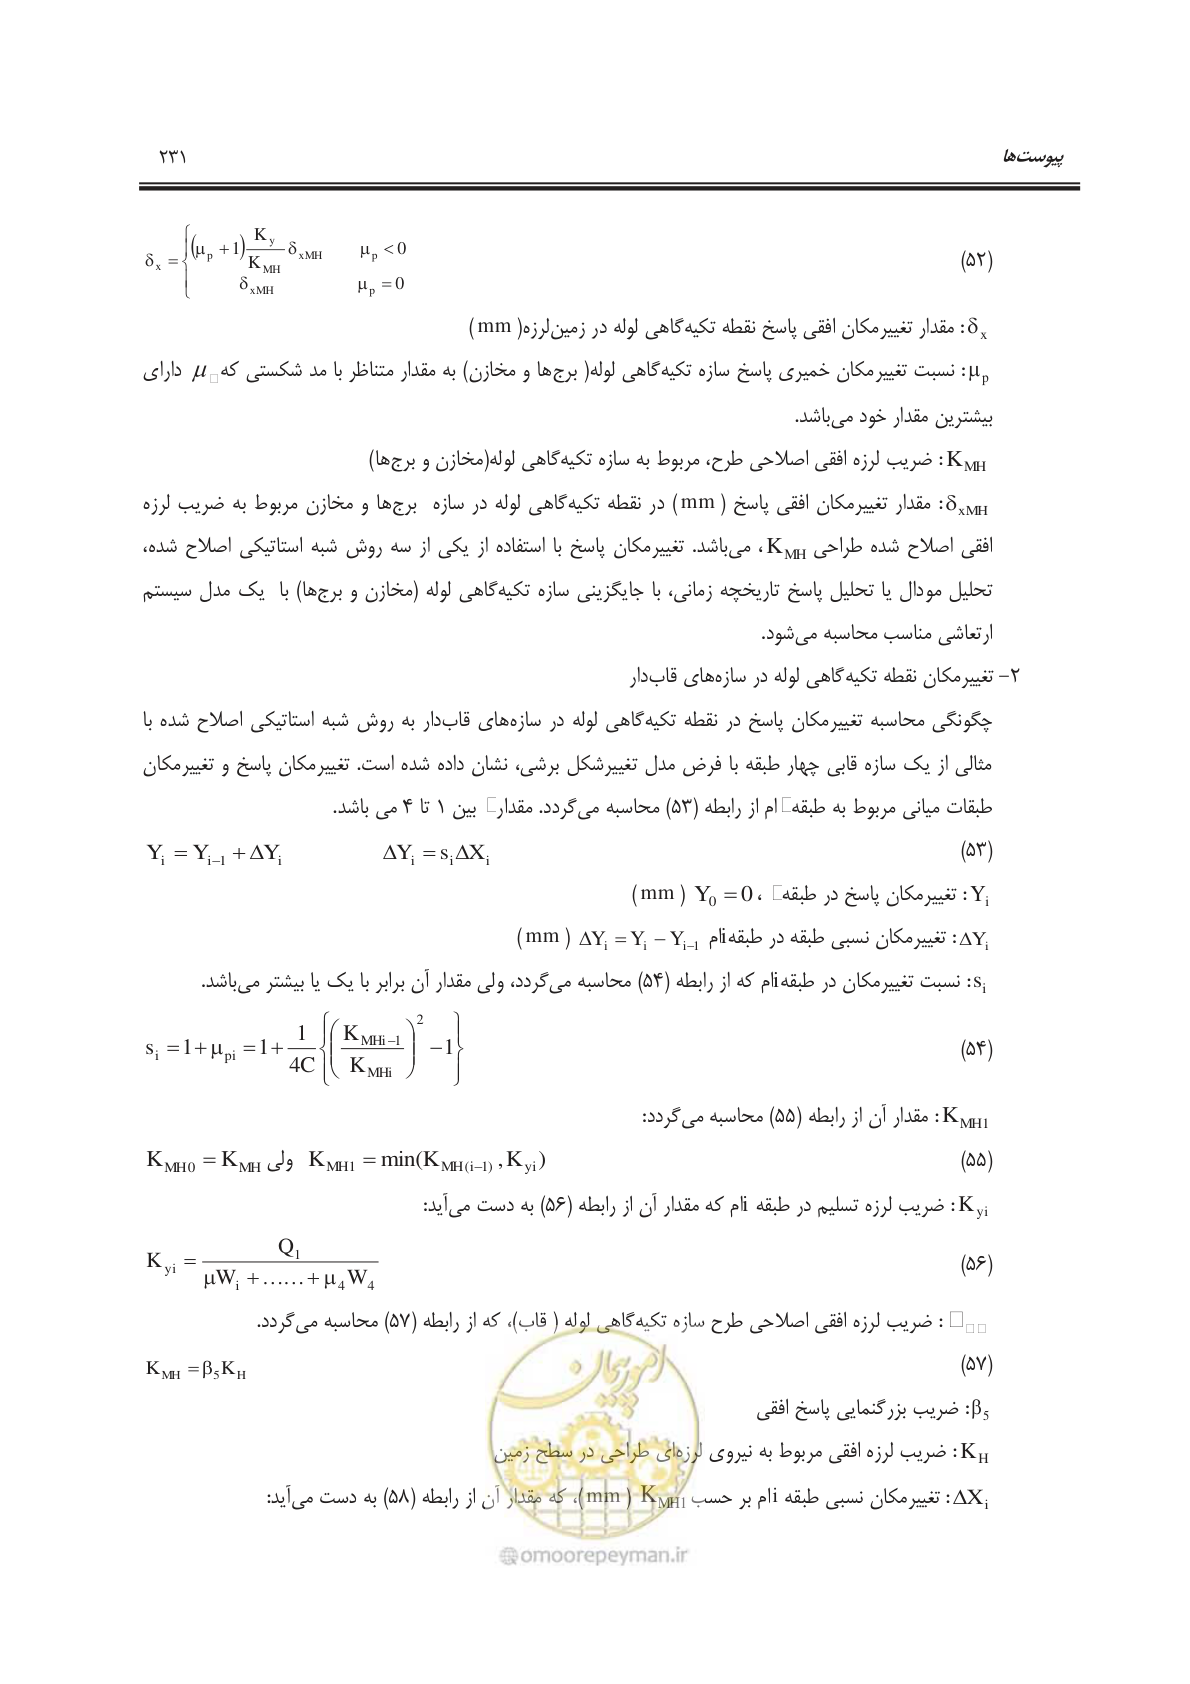 پیوست‌ها ۲۳۱
δx = { (μp + 1) Ky/KMH δxMH μp < 0 (۵۲)
δxMH μp = 0
δx: مقدار تغییرمکان افقی پاسخ نقطه تکیه‌گاهی لوله در زمین‌لرزه( mm )
μp: نسبت تغییرمکان خمیری پاسخ سازه تکیه‌گاهی لوله( برج‌ها و مخازن) به مقدار متناظر با مد شکستی که μ□ دارای
بیشترین مقدار خود می‌باشد.
KMH: ضریب لرزه افقی اصلاحی طرح، مربوط به سازه تکیه‌گاهی لوله(مخازن و برج‌ها)
δxMH: مقدار تغییرمکان افقی پاسخ ( mm ) در نقطه تکیه‌گاهی لوله در سازه برج‌ها و مخازن مربوط به ضریب لرزه
افقی اصلاح شده طراحی KMH، می‌باشد. تغییرمکان پاسخ با استفاده از یکی از سه روش شبه استاتیکی اصلاح شده،
تحلیل مودال یا تحلیل پاسخ تاریخچه زمانی، با جایگزینی سازه تکیه‌گاهی لوله (مخازن و برج‌ها) با یک مدل سیستم
ارتعاشی مناسب محاسبه می‌شود.
۲- تغییرمکان نقطه تکیه‌گاهی لوله در سازه‌های قاب‌دار
چگونگی محاسبه تغییرمکان پاسخ در نقطه تکیه‌گاهی لوله در سازه‌های قاب‌دار به روش شبه استاتیکی اصلاح شده با
مثالی از یک سازه قابی چهار طبقه با فرض مدل تغییرشکل برشی، نشان داده شده است. تغییرمکان پاسخ و تغییرمکان
طبقات میانی مربوط به طبقه□ ام از رابطه (۵۳) محاسبه می‌گردد. مقدار□ بین ۱ تا ۴ می باشد.
Yi = Yi−1 + ΔYi ΔYi = siΔXi (۵۳)
Yi: تغییرمکان پاسخ در طبقه□ ، Y0 = 0 ( mm )
ΔYi: تغییرمکان نسبی طبقه در طبقهiام ΔYi = Yi − Yi−1 ( mm )
si: نسبت تغییرمکان در طبقهiام که از رابطه (۵۴) محاسبه می‌گردد، ولی مقدار آن برابر با یک یا بیشتر می‌باشد.
si = 1 + μpi = 1 + 1/4C {(KMHi−1/KMHi)² − 1} (۵۴)
KMH1: مقدار آن از رابطه (۵۵) محاسبه می‌گردد:
KMH0 = KMH ولی KMH1 = min(KMH(i−1) , Kyi) (۵۵)
Kyi: ضریب لرزه تسلیم در طبقه iام که مقدار آن از رابطه (۵۶) به دست می‌آید:
Kyi = Q1/(μWi + ...... + μ4W4) (۵۶)
□□□ : ضریب لرزه افقی اصلاحی طرح سازه تکیه‌گاهی لوله ( قاب)، که از رابطه (۵۷) محاسبه می‌گردد.
KMH = β5KH (۵۷)
β5: ضریب بزرگنمایی پاسخ افقی
KH: ضریب لرزه افقی مربوط به نیروی لرزه‌ای طراحی در سطح زمین
ΔXi: تغییرمکان نسبی طبقه iام بر حسب KMH1 ( mm )، که مقدار آن از رابطه (۵۸) به دست می‌آید:
امور پیمان
@omoorepeyman.ir